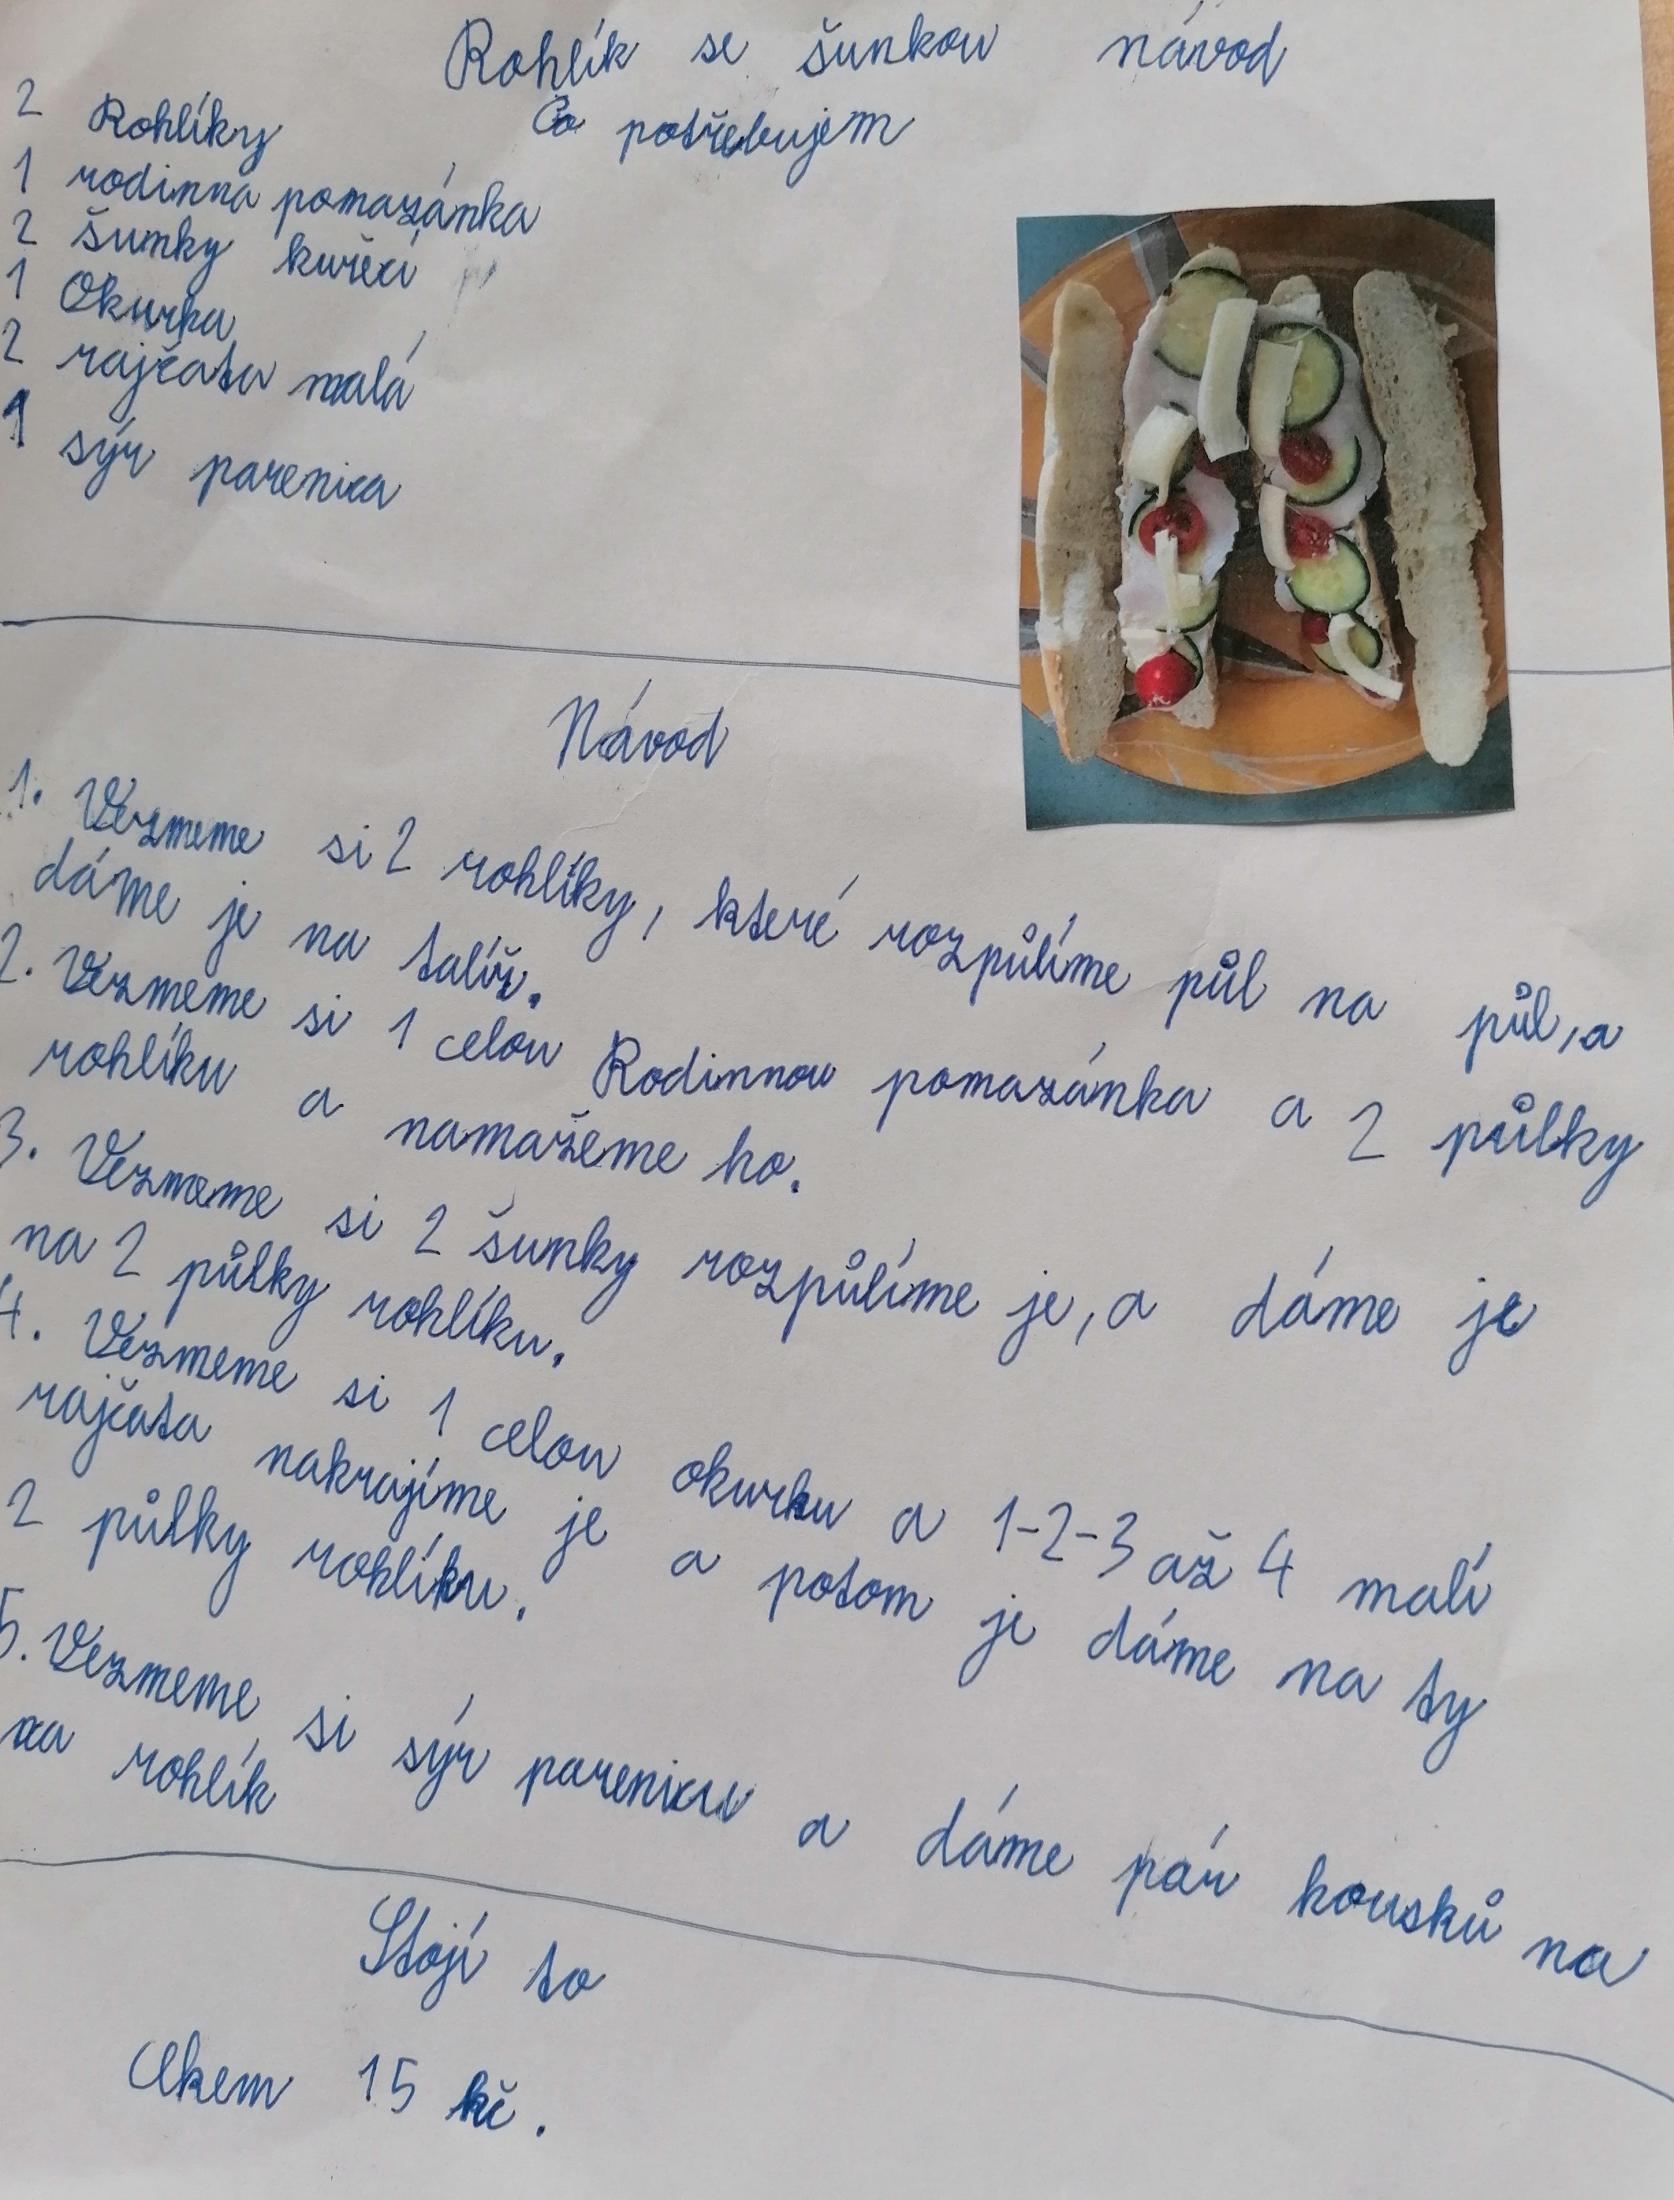 Rohlík se šunkou návod
Co potřebujem
2 Rohlíky
1 rodinna pomazánka
2 šunky kuřecí
1 Okurka
2 rajčata malá
1 sýr parenica
Návod
1. Vezmeme si 2 rohlíky, které rozpůlíme půl na půl, a
dáme je na talíř.
2. Vezmeme si 1 celou Rodinnou pomazánka a 2 půlky
rohlíku a namažeme ho.
3. Vezmeme si 2 šunky rozpůlíme je, a dáme je
na 2 půlky rohlíku.
4. Vezmeme si 1 celou okurku a 1-2-3 až 4 malí
rajčata nakrajíme je a potom je dáme na ty
2 půlky rohlíku.
5. Vezmeme si sýr parenicu a dáme pár kousků na
na rohlík
Stojí to
Clkem 15 kč.